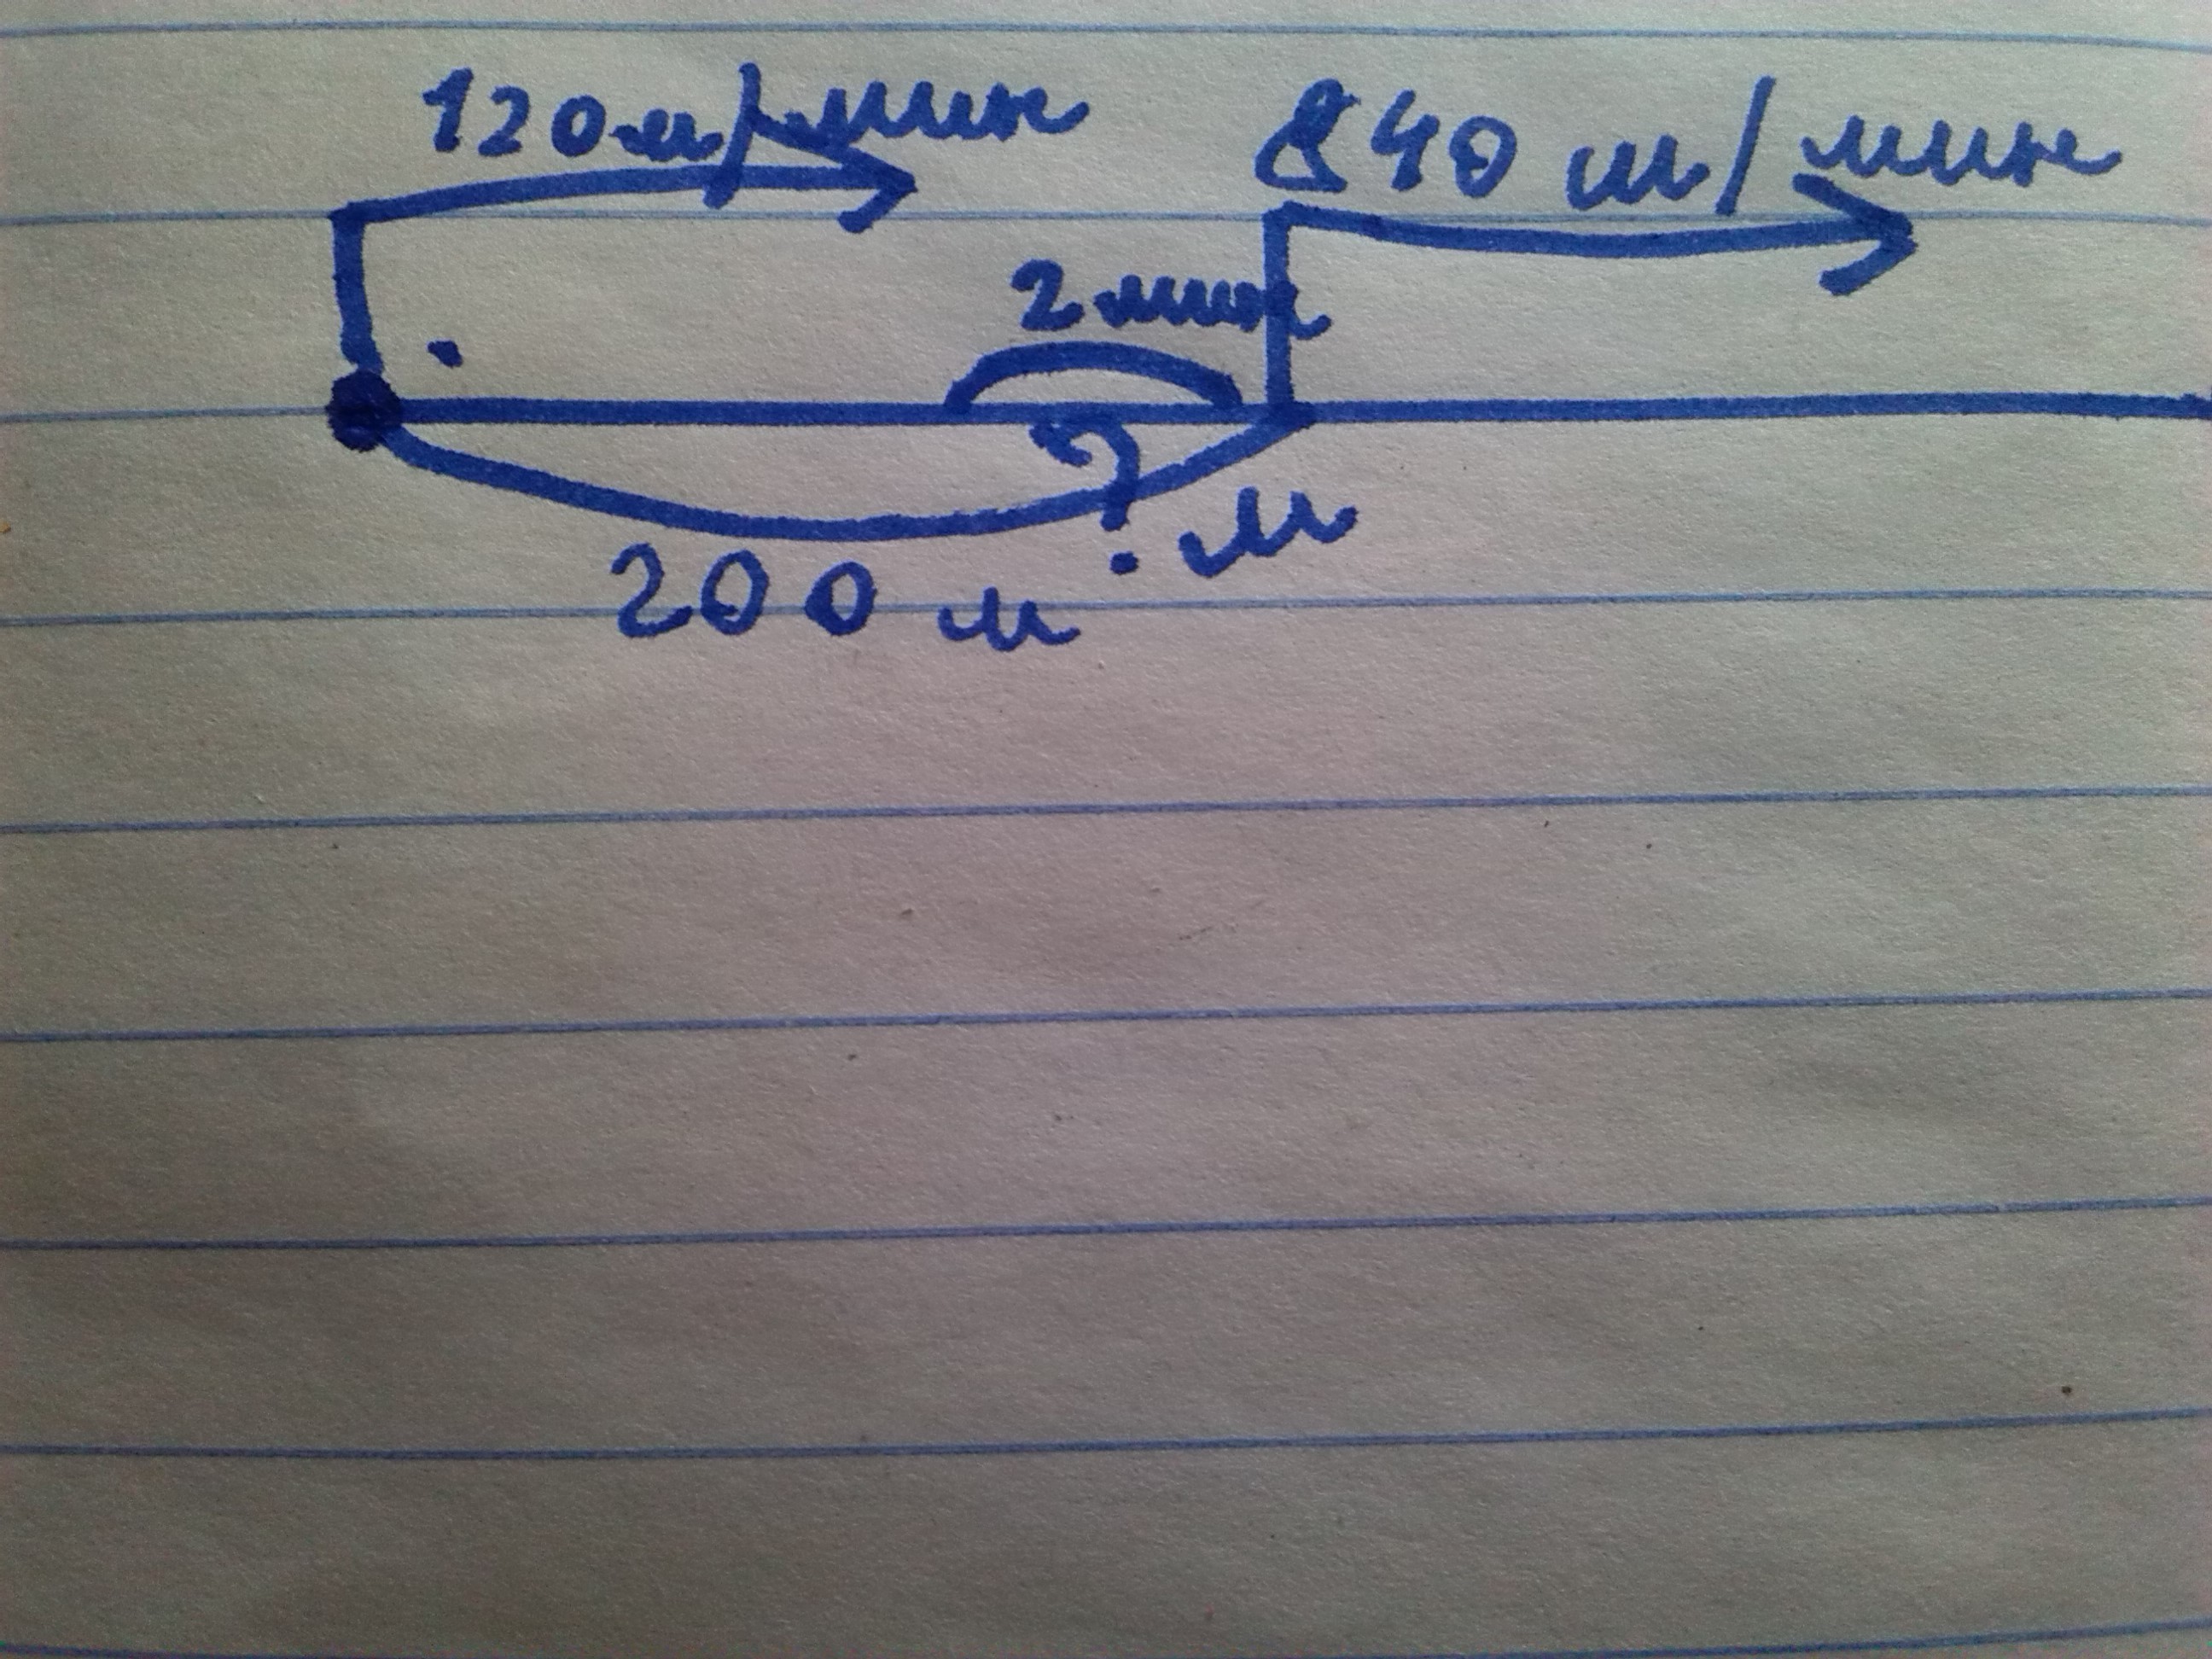 120 м/мин 840 м/мин
2 мин
? м
200 м